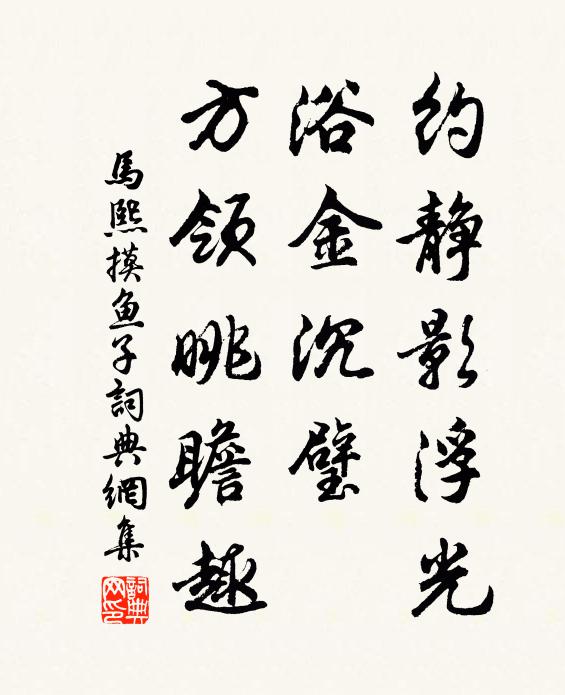 约静影浮光
浴金沉璧
方领眺瞻趣
馬熙摸魚子詞典網集
詞典网印